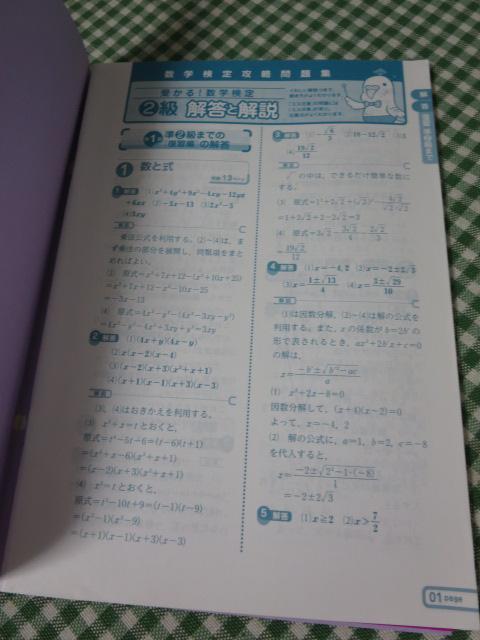 数学検定攻略問題集
受かる！数学検定
②級 解答と解説
第1章 準②級までの
復習編 の解答
1 数と式
1 解答 (1)x²+4y²+9z²-4xy-12yz
+6xz (2)-3x-13 (3)2x²-3
(4)3xy
解説
乗法公式を利用する。(2)~(4)は、ま
ず乗法の部分を展開し、同類項をまと
めればよい。
(2) 原式=x²+7x+12-(x²+10x+25)
=x²+7x+12-x²-10x-25
=-3x-13
(4) 原式=4x²-y²-(4x²-3xy-y²)
=4x²-y²-4x²+3xy+y²=3xy
2 解答 (1)(4x+y)(4x-y)
(2)x(x-2)(x-4)
(3)(x-2)(x+3)(x²+x+1)
(4)(x+1)(x-1)(x+3)(x-3)
解説
(3)、(4)はおきかえを利用する。
(3) x²+x=tとおくと、
原式=t²-5t-6=(t-6)(t+1)
=(x²+x-6)(x²+x+1)
=(x-2)(x+3)(x²+x+1)
(4) x²=tとおくと、
原式=t²-10t+9=(t-1)(t-9)
=(x²-1)(x²-9)
=(x+1)(x-1)(x+3)(x-3)
3 解答
(2)18-12√2 (3)3
(4)19√2/12
解説
√ の中は、できるだけ簡単な数に
する。
=1+2√2+2-2√2=3
(4) 原式=3√2-3√2/4-2√2/3
=19√2/12
4 解答 (1)x=-4, 2 (2)x=-2±2√3
(3)x=1±√13/4 (4)x=3±√29/10
解説
(1)は因数分解、(2)~(4)は解の公式を
利用する。また、xの係数がb=2b'の
形で表されるとき、ax²+2b'x+c=0
の解は、
x=-b'±√b'²-ac/a
(1) x²+2x-8=0
因数分解して、(x+4)(x-2)=0
よって、x=-4, 2
(2) 解の公式に、a=1, b=2, c=-8
を代入すると、
x=-2±√2²-1・(-8)/1
=-2±2√3
5 解答 (1)x≧2 (2)x>7/2
01 page